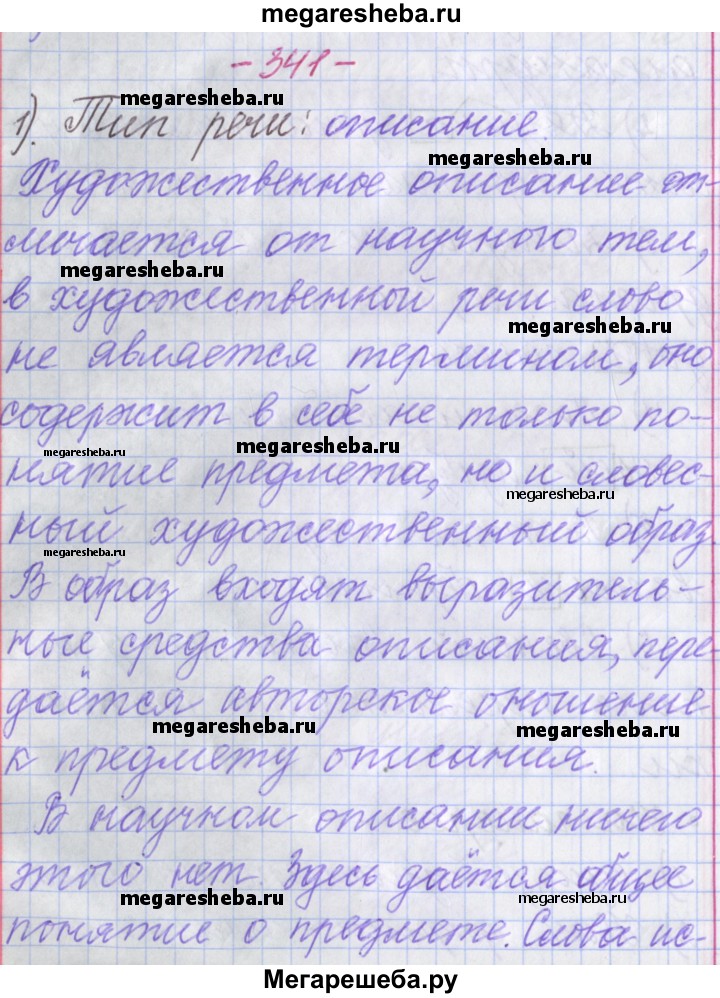 megaresheba.ru
- 341 -
megaresheba.ru
1). Тип речи: описание.
megaresheba.ru
Художественное описание от-
личается от научного тем,
megaresheba.ru
в художественной речи слово
megaresheba.ru
не является термином, оно
содержит в себе не только по-
megaresheba.ru
megaresheba.ru
нятие предмета, но и словес-
megaresheba.ru
ный художественный образ.
megaresheba.ru
В образ входят выразитель-
ные средства описания, пере-
даётся авторское оношение
megaresheba.ru
megaresheba.ru
к предмету описания.
В научном описании ничего
этого нет. Здесь даётся общее
megaresheba.ru
megaresheba.ru
понятие о предмете. Слова ис-
Мегарешеба.ру